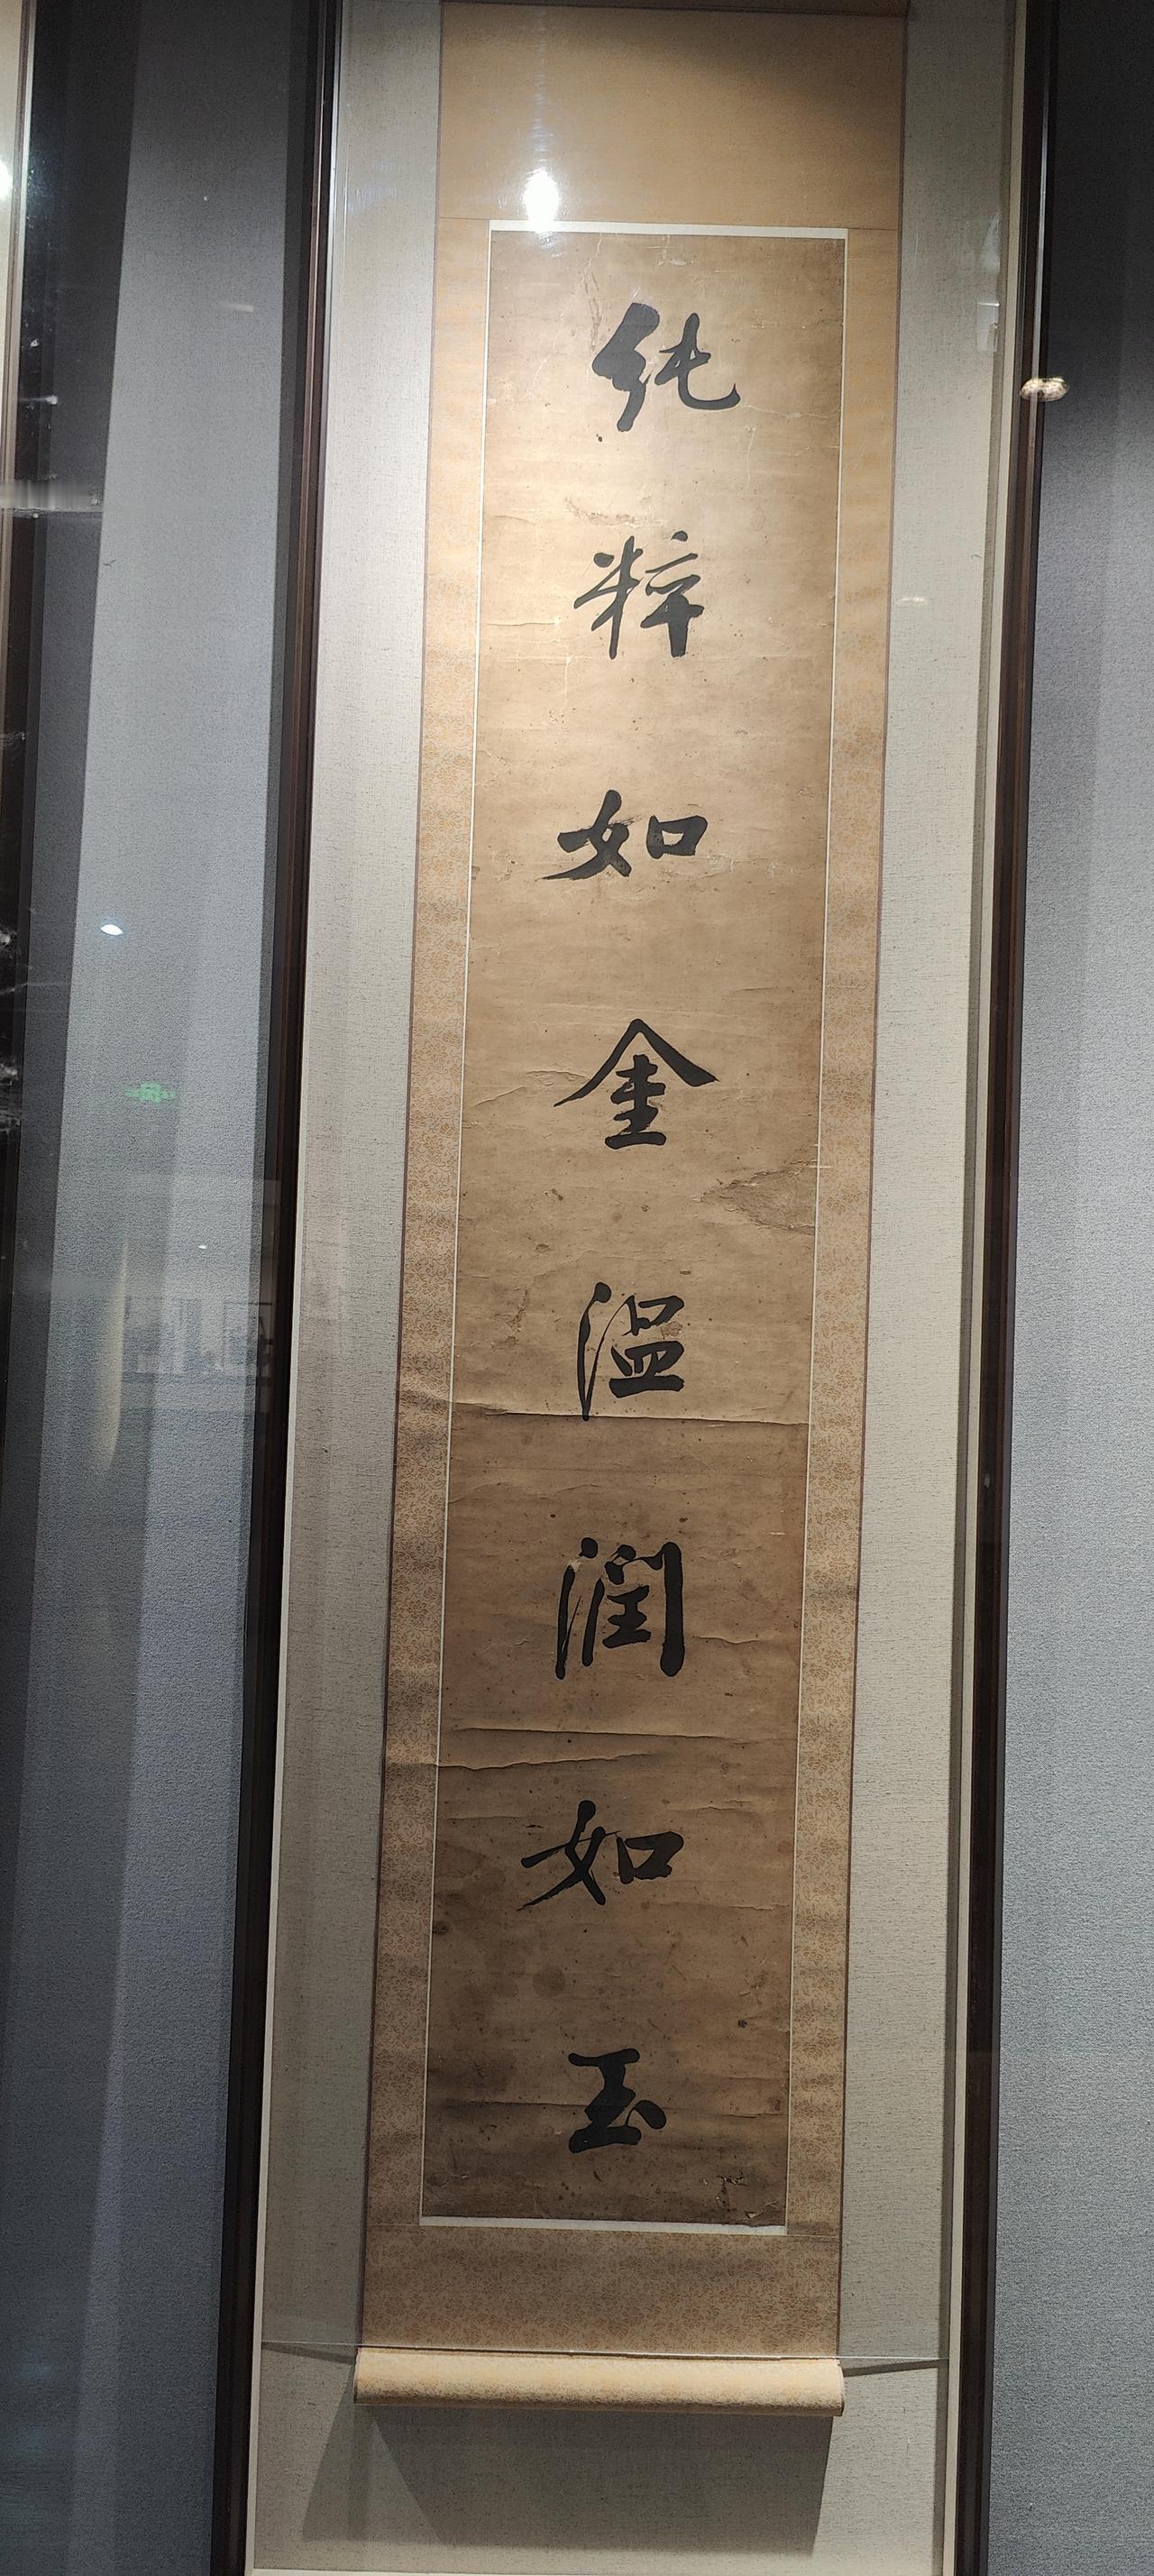 纯粹如金温润如玉